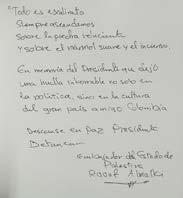 "Todo es exabrupto
Siempre ascendemos
Sobre la piedra reluciente
y sobre el mármol suave y el incienso.
En memoria del Presidente que dejó
una huella imborrable no solo en
la política, sino en la cultura
del gran país amigo Colombia
Descanse en Paz Presidente
Betancur
Embajador del Estado de
Palestina
Raouf Almalki